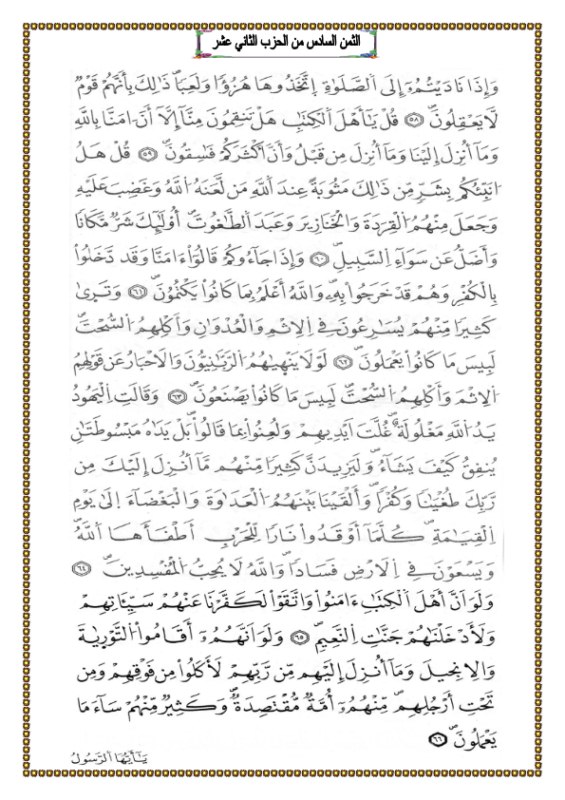 الثمن السادس من الحزب الثاني عشر
وَإِذَا نَادَيْتُمُۥٓ إِلَى اَ۬لصَّلَوٰةِ اِ۪تَّخَذُوهَا هُزُؤاٗ وَلَعِباٗۖ ذَٰلِكَ بِأَنَّهُمْ قَوْمٞ
لَّا يَعْقِلُونَۖ ٥٨ قُلْ يَٰٓأَهْلَ اَ۬لْكِتَٰبِ هَلْ تَنقِمُونَ مِنَّآ إِلَّآ أَنَ اٰمَنَّا بِاللَّهِ
وَمَآ أُنزِلَ إِلَيْنَا وَمَآ أُنزِلَ مِن قَبْلُ وَأَنَّ أَكْثَرَكُمْ فَٰسِقُونَۖ ٥٩ قُلْ هَلُ
ا۟نَبِّئُكُم بِشَرّٖ مِّن ذَٰلِكَ مَثُوبَةً عِندَ اَ۬للَّهِ مَن لَّعَنَهُ اُ۬للَّهُ وَغَضِبَ عَلَيْهِ
وَجَعَلَ مِنْهُمُ اُ۬لْقِرَدَةَ وَالْخَنَازِيرَ وَعَبَدَ اَ۬لطَّٰغُوتَۖ أُوْلَٰٓئِكَ شَرّٞ مَّكَاناٗ
وَأَضَلُّ عَن سَوَآءِ اِ۬لسَّبِيلِۖ ٦٠ وَإِذَا جَآءُوكُمْ قَالُوٓاْ ءَامَنَّا وَقَد دَّخَلُواْ
بِالْكُفْرِ وَهُمْ قَدْ خَرَجُواْ بِهِۦۖ وَاللَّهُ أَعْلَمُ بِمَا كَانُواْ يَكْتُمُونَۖ ٦١ وَتَرَىٰ
كَثِيراٗ مِّنْهُمْ يُسَٰرِعُونَ فِي اِ۬لِاثْمِ وَالْعُدْوَٰنِ وَأَكْلِهِمُ اُ۬لسُّحْتَۖ
لَبِيسَ مَا كَانُواْ يَعْمَلُونَۖ ٦٢ لَوْلَا يَنْهَيٰهُمُ اُ۬لرَّبَّٰنِيُّونَ وَالَاحْبَارُ عَن قَوْلِهِمُ
اُ۬لِاثْمَ وَأَكْلِهِمُ اُ۬لسُّحْتَۖ لَبِيسَ مَا كَانُواْ يَصْنَعُونَۖ ٦٣ وَقَالَتِ اِ۬لْيَهُودُ
يَدُ اُ۬للَّهِ مَغْلُولَةٌۖ غُلَّتَ اَيْدِيهِمْ وَلُعِنُواْ بِمَا قَالُواْۖ بَلْ يَدَٰهُ مَبْسُوطَتَٰنِ
يُنفِقُ كَيْفَ يَشَآءُۖ وَلَيَزِيدَنَّ كَثِيراٗ مِّنْهُم مَّآ أُنزِلَ إِلَيْكَ مِن
رَّبِّكَ طُغْيَٰناٗ وَكُفْراٗۖ وَأَلْقَيْنَا بَيْنَهُمُ اُ۬لْعَدَٰوَةَ وَالْبَغْضَآءَ اِلَىٰ يَوْمِ
اِ۬لْقِيَٰمَةِۖ كُلَّمَآ أَوْقَدُواْ نَاراٗ لِّلْحَرْبِ أَطْفَأَهَا اَ۬للَّهُۖ
وَيَسْعَوْنَ فِي اِ۬لَارْضِ فَسَاداٗۖ وَاللَّهُ لَا يُحِبُّ اُ۬لْمُفْسِدِينَۖ ٦٤
وَلَوَ اَنَّ أَهْلَ اَ۬لْكِتَٰبِ ءَامَنُواْ وَاتَّقَوْاْ لَكَفَّرْنَا عَنْهُمْ سَيِّـَٔاتِهِمْ
وَلَأَدْخَلْنَٰهُمْ جَنَّٰتِ اِ۬لنَّعِيمِۖ ٦٥ وَلَوَ اَنَّهُمُۥٓ أَقَامُواْ اُ۬لتَّوْرَيٰةَ
وَالِانجِيلَ وَمَآ أُنزِلَ إِلَيْهِم مِّن رَّبِّهِمْ لَأَكَلُواْ مِن فَوْقِهِمْ وَمِن
تَحْتِ أَرْجُلِهِمۖ مِّنْهُمُۥٓ أُمَّةٞ مُّقْتَصِدَةٞۖ وَكَثِيرٞ مِّنْهُمْ سَآءَ مَا
يَعْمَلُونَۖ ٦٦
يَٰٓأَيُّهَا اَ۬لرَّسُولُ